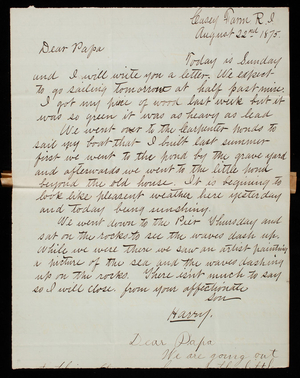 Casey Farm R I
August 22nd 1875.
Dear Papa
Today is Sunday
and I will write you a letter. We expect
to go sailing tomorrow at half past nine.
I got my piece of wood last week but it
was so green it was as heavy as lead
We went over to the Carpenter ponds to
sail my boat that I built last summer
first we went to the pond by the grave yard
and afterwards we went to the little pond
beyond the old house. It is begining to
look like pleasent weather here yesterday
and today being sunshiny.
We went down to the Pier Thursday and
sat on the rocks to see the waves dash up.
While we were there we saw an artist painting
a picture of the sea and the waves dashing
up on the rocks. There isnt much to say
so I will close from your affectionate
Son
Harry.
Dear Papa
We are going out